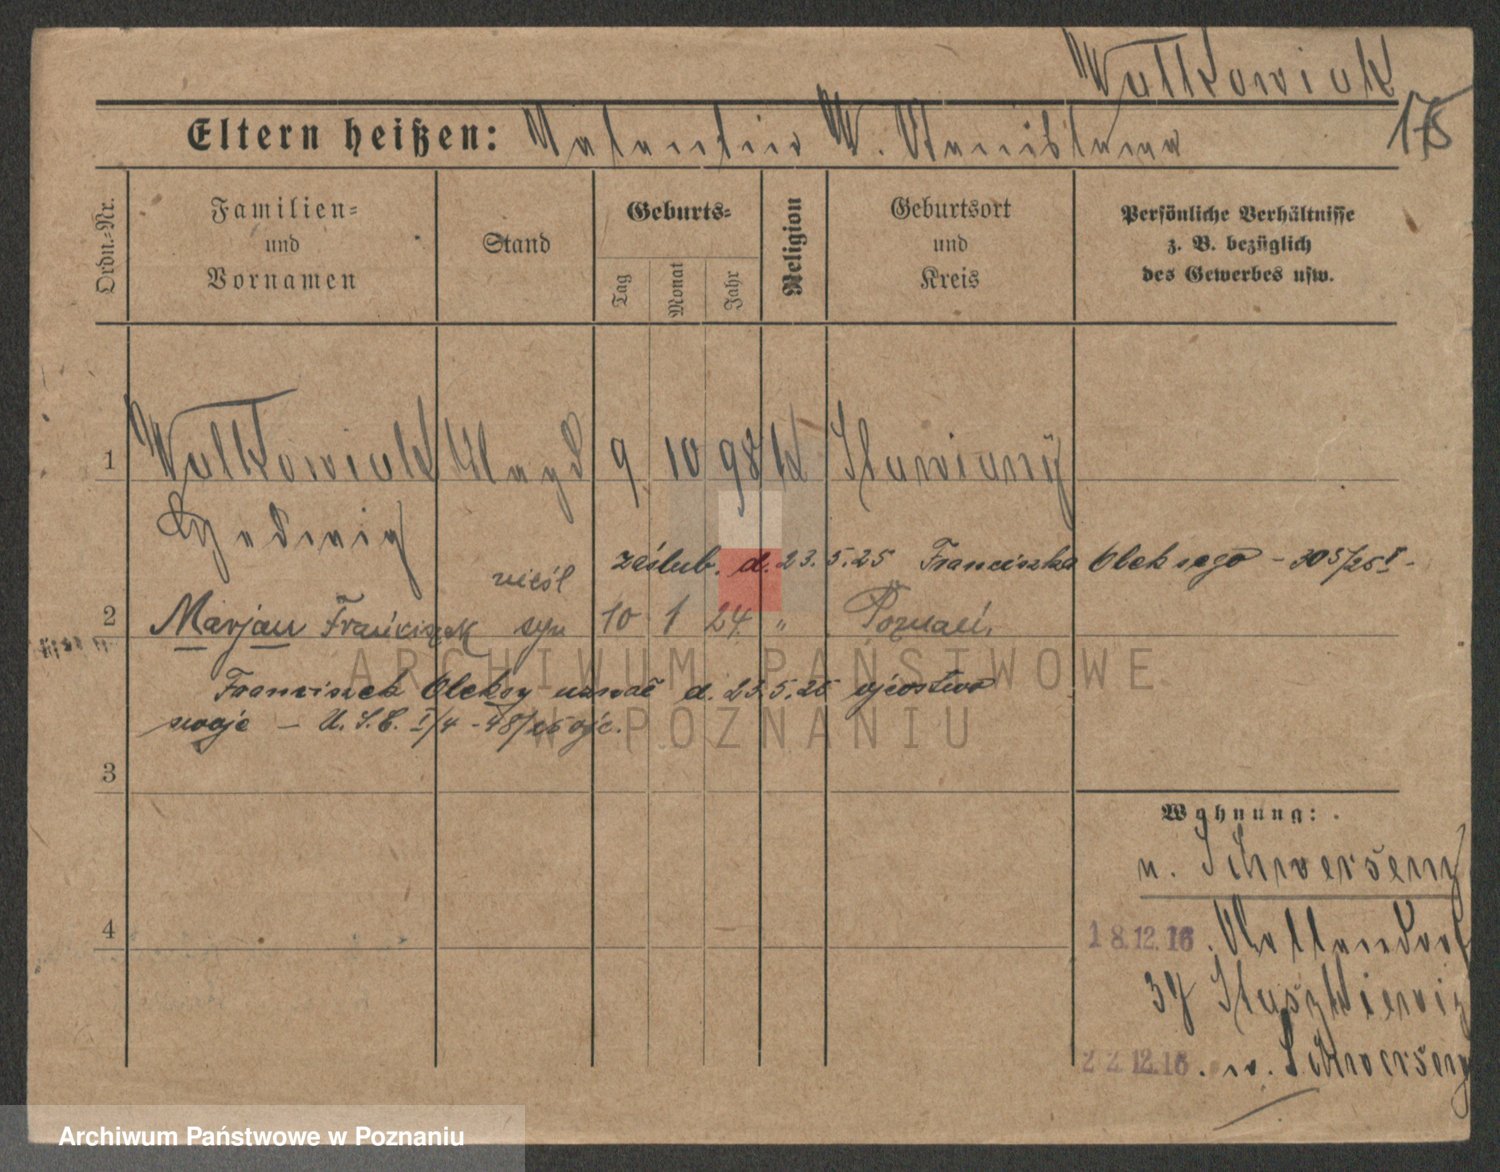 Watkowiak
175
Eltern heißen: Valentin W. Stanislawa
Ordn.-Nr.
Familien-
und
Vornamen
Stand
Geburts-
Tag
Monat
Jahr
Religion
Geburtsort
und
Kreis
Persönliche Verhältnisse
z. B. bezüglich
des Gewerbes usw.
1 Watkowiak 9 10 98 k
Hedwig
zaślub. d. 23.5.25 Franciszka Oleksego - 305/25
nieśl
2 Marjan Franciszek syn 10 1 24 " Poznań.
Franciszek Oleksy uznał d. 23.5.25 ojcostwo
swoje - U.S.C. I/4 - 48/25 ojc.
3
4
Wohnung:
n. Schwersenz
18.12.16.
37
22.12.16. n. Schwersenz
ARCHIWUM PAŃSTWOWE
W POZNANIU
Archiwum Państwowe w Poznaniu